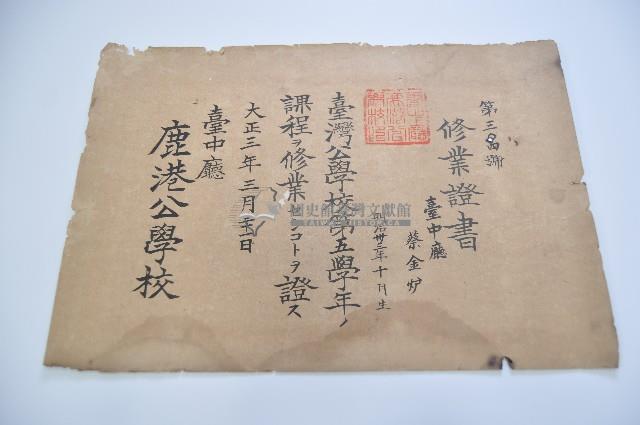 修業證書
臺中廳
蔡金炉
明治卅三年十月生
臺灣公學校第五學年ノ
課程ヲ修業シコトヲ證ス
大正三年三月
臺中廳
鹿港公學校
國史館臺灣文獻館